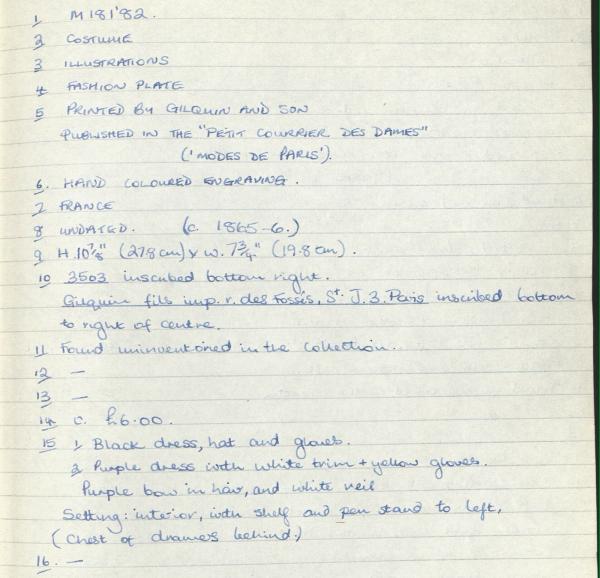 1 M181'82.
2 COSTUME
3 ILLUSTRATIONS
4 FASHION PLATE
5 PRINTED BY GILQUIN AND SON
PUBLISHED IN THE "PETIT COURRIER DES DAMES"
('MODES DE PARIS').
6. HAND COLOURED ENGRAVING.
7 FRANCE
8 UNDATED. (c. 1865-6.)
9 H.10⅞" (27.8 cm) x W.7¾" (19.8 cm).
10 3503 inscribed bottom right.
Gilquin fils imp. r. des Fossés, St. J. 3. Paris inscribed bottom
to right of centre.
11 Found uninventoried in the collection.
12 —
13 —
14 c. £6.00.
15 1, Black dress, hat and gloves.
2, Purple dress with white trim + yellow gloves.
Purple bow in hair, and white veil
Setting: interior, with shelf and pen stand to left,
(Chest of drawers behind.)
16. —